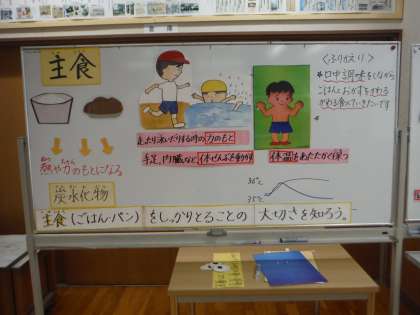 主食
熱や力のもとになる
ねつ
ちから
炭水化物
走ったり泳いだりする時の力のもと
手足、内臓など体ぜんぶを動かす
体温をあたたかく保つ
36℃
35℃
<ふりかえり>
口中調味をしながら
ごはんとおかずをかわる
がわる食べていきたいです
主食(ごはん・パン)をしっかりとることの大切さを知ろう。